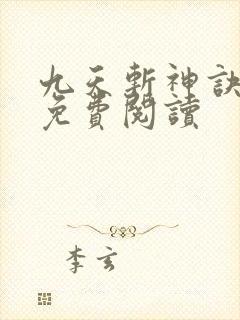 九天斬神訣
免費閱讀
李玄